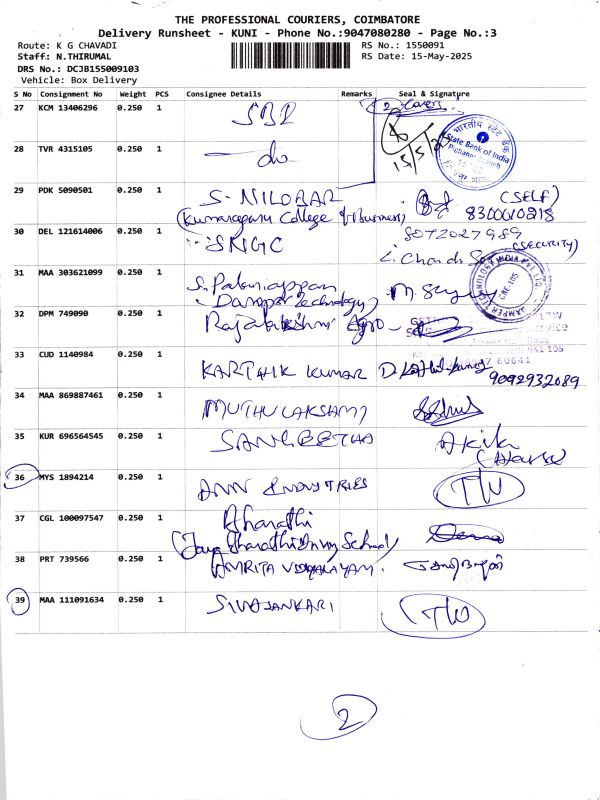 THE PROFESSIONAL COURIERS, COIMBATORE
Delivery Runsheet - KUNI - Phone No.:9047080280 - Page No.:3
Route: K G CHAVADI RS No.: 1550091
Staff: N.THIRUMAL RS Date: 15-May-2025
DRS No.: DCJB155009103
Vehicle: Box Delivery
S No Consignment No Weight PCS Consignee Details Remarks Seal & Signature
27 KCM 13406296 0.250 1 SBI 2 Covers
15/5/25
28 TVR 4315105 0.250 1 — do —
भारतीय स्टेट बैंक
State Bank of India
29 PDK 5090501 0.250 1 S. NILOBAR (SELF)
(Kumaraguru College of Business) 8300010218
30 DEL 121614006 0.250 1 SKIGC 8072027989
(SECURITY)
31 MAA 303621099 0.250 1 S. Palaniappan
Damper Technology
DAMPER TECHNOLOGY INDIA PVT LTD
CBE-105
32 DPM 749090 0.250 1 Rajalakshmi Agro
641 105
33 CUD 1140984 0.250 1 KARTHIK KUMAR
9092932089
34 MAA 869887461 0.250 1 MUTHULAKSHMI
35 KUR 696564545 0.250 1 SANGEETHA Akila
36 MYS 1894214 0.250 1 ANN INDUSTRIES TW
37 CGL 100097547 0.250 1 Bharathi
(Jaya Bharathi Driving School)
38 PRT 739566 0.250 1 AMRITA VIDYALAYAM.
39 MAA 111091634 0.250 1 SIVASANKARI TW
2